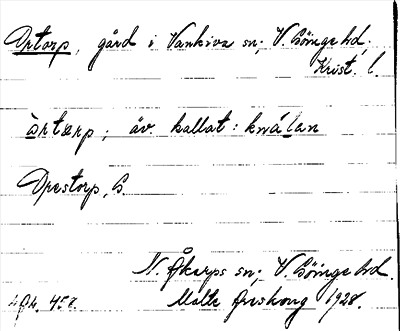 Ortorp, gård i Vankiva sn; V. Göinge hd,
Krist. l.
òrtɷrp; äv. kallat: knálan
Orestorp, G.
N. Åkarps sn; V. Göinge hd.
Malte Areskoug 1928.